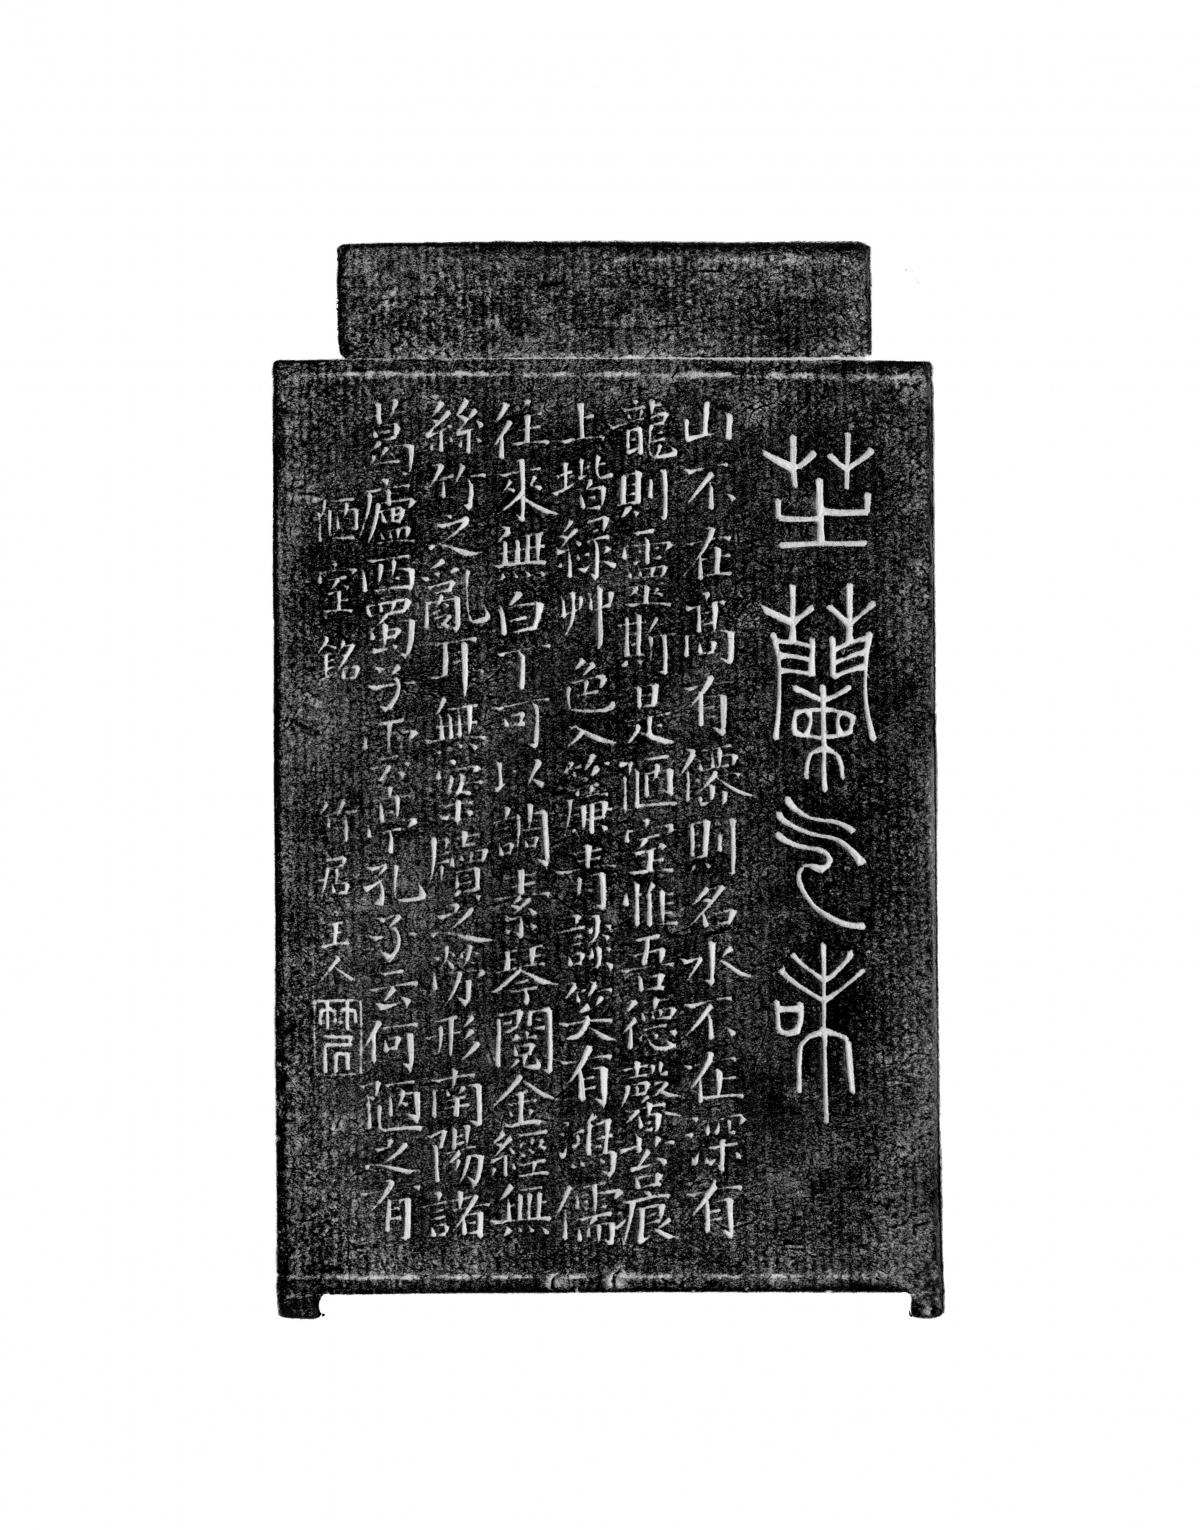 芝蘭气味
山不在高有僊則名水不在深有
龍則靈斯是陋室惟吾德馨苔痕
上堦緑艸色入簾青談笑有鴻儒
往來無白丁可以調素琴閲金經無
絲竹之亂耳無案牘之勞形南陽諸
葛廬西蜀子雲亭孔子云何陋之有
陋室銘 竹居主人
竹居